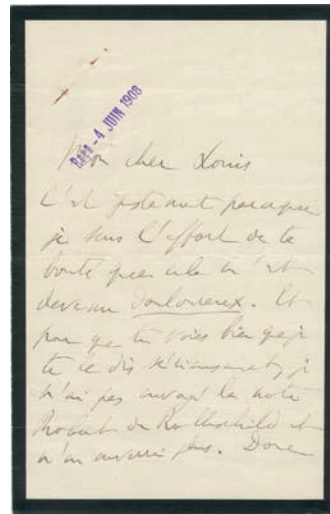 Reçu - 4 JUIN 1908
Mon cher Louis
C'est justement parce que
je sens l'effort de ta
bonté que cela m'est
devenu douloureux. Et
pour que tu voies bien que je
te le dis sérieusement, je
n'ai pas envoyé la note
Robert de Rothschild et
n'en enverrai plus. Donc